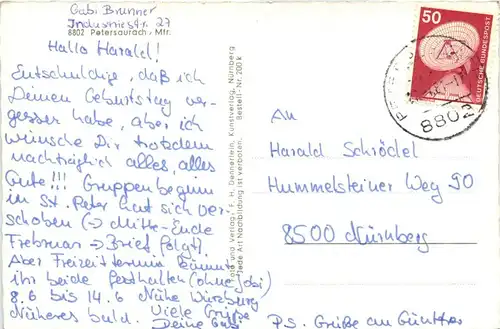 Gabi Brunner
Industriestr. 27
8802 Petersaurach, Mfr.
Hallo Harald!
Entschuldige, daß ich
Deinen Geburtstag ver-
gessen habe, aber ich
wünsche Dir trotzdem
nachträglich alles, alles
Gute!!! Gruppenbeginn
in St. Peter hat sich ver-
schoben (→ Mitte-Ende
Februar → Brief folgt).
Aber Freizeittermin könnt
ihr beide festhalten (ohne
8.6 bis 14.6 Nähe Würzburg
Näheres bald. Viele Grüße
Deine Gabi
Foto und Verlag: F. H. Dennerlein, Kunstverlag, Nürnberg
Jede Art Nachbildung ist verboten. Bestell-Nr. 200 k
50
DEUTSCHE BUNDESPOST
8802
An
Harald Schrödel
Hummelsteiner Weg 90
8500 Nürnberg
P.S. Grüße an Günther